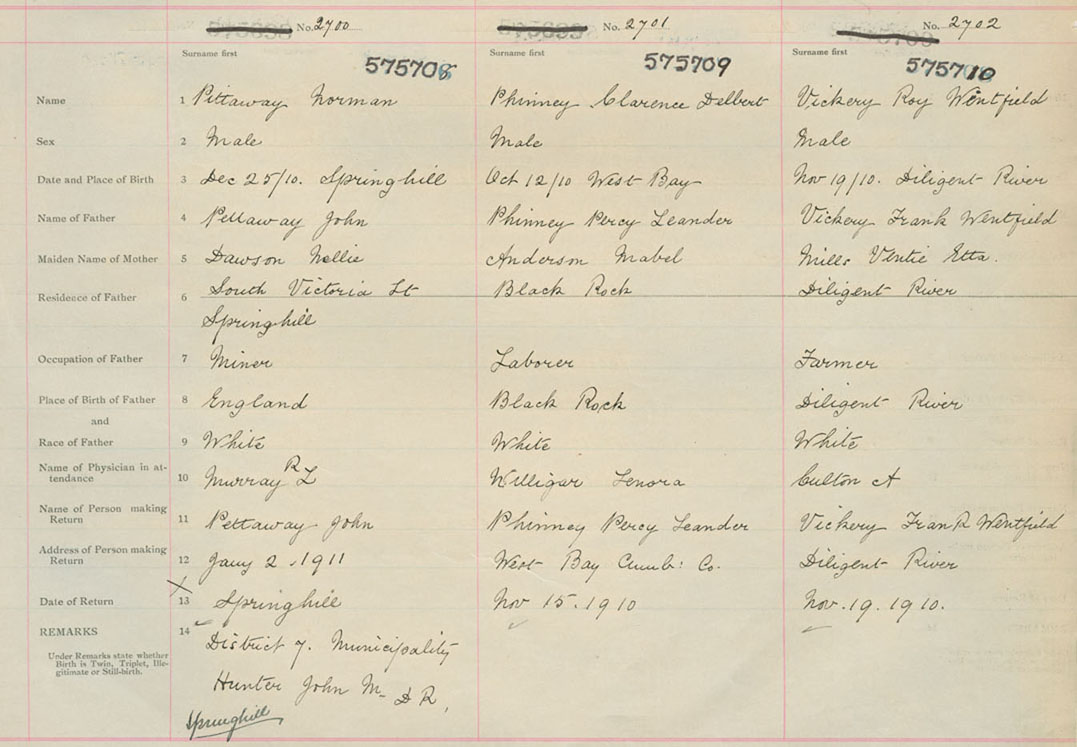 No. 2700 No. 2701 No. 2702
Surname first Surname first Surname first
575708 575709 575710
Name 1 Pittaway Norman Phinney Clarence Delbert Vickery Roy Wentfield
Sex 2 Male Male Male
Date and Place of Birth 3 Dec 25/10. Springhill Oct 12/10 West Bay Nov 19/10. Diligent River
Name of Father 4 Pettaway John Phinney Percy Leander Vickery Frank Wentfield
Maiden Name of Mother 5 Dawson Nellie Anderson Mabel Mills Ventie Etta.
Residence of Father 6 South Victoria St Black Rock Diligent River
Springhill
Occupation of Father 7 Miner Laborer Farmer
Place of Birth of Father 8 England Black Rock Diligent River
and
Race of Father 9 White White White
Name of Physician in at-
tendance 10 Murray R L Willigar Lenora A
Name of Person making
Return 11 Pettaway John Phinney Percy Leander Vickery Frank Wentfield
Address of Person making
Return 12 Jany 2, 1911 West Bay Cumb: Co. Diligent River
Date of Return 13 Springhill Nov 15. 1910 Nov. 19. 1910.
REMARKS 14
Under Remarks state whether
Birth is Twin, Triplet, Ille-
gitimate or Still-birth.
District 7. Municipality
Hunter John M- D R,
Springhill